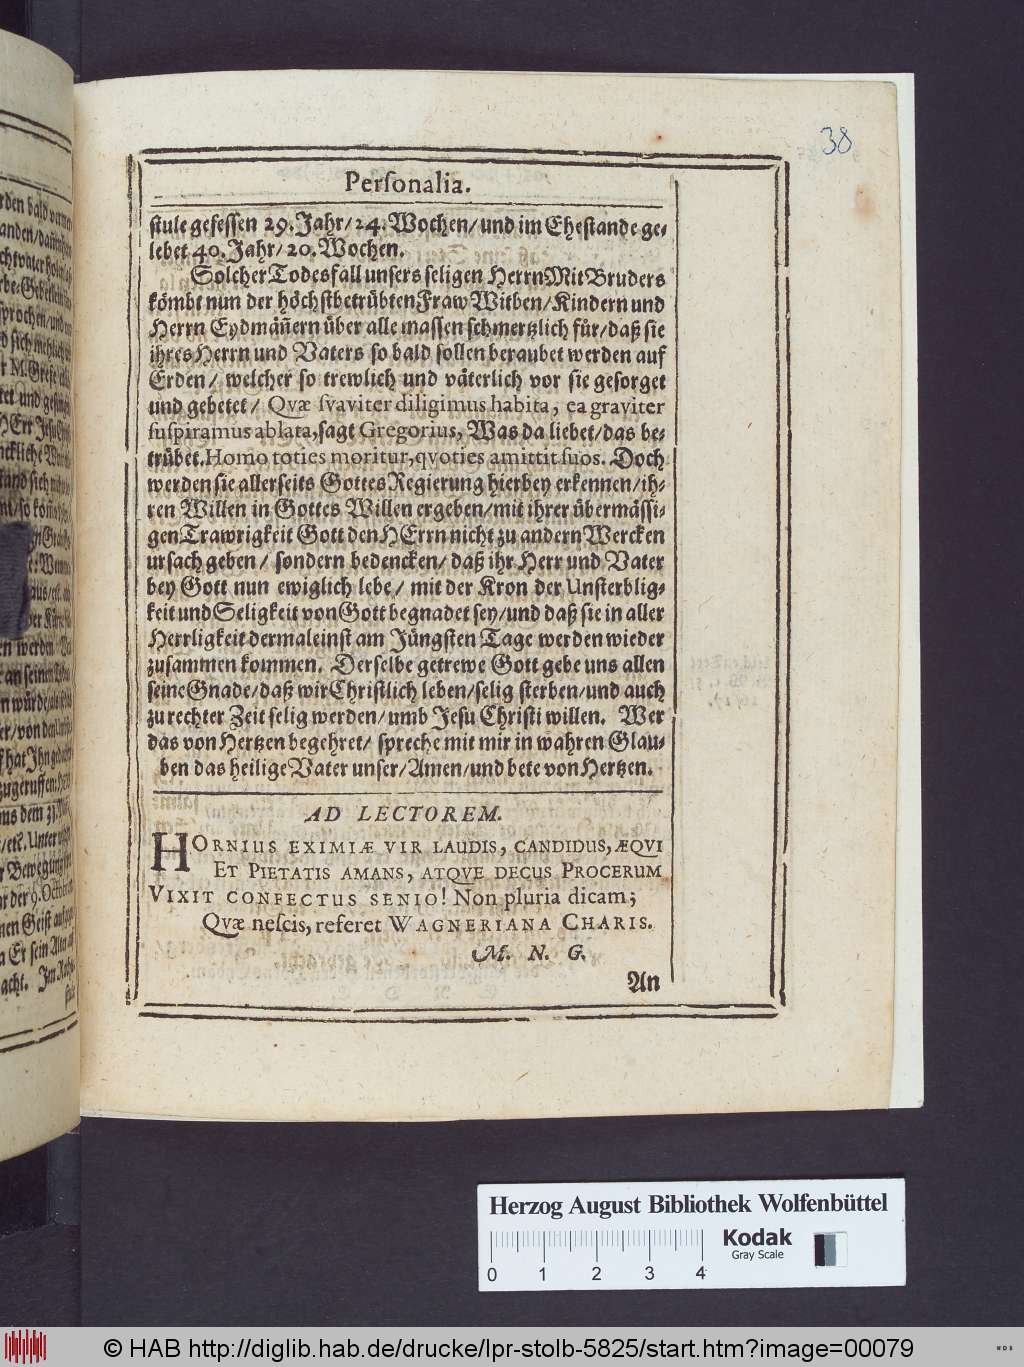 38
Perſonalia.
ſtule geſeſſen 29. Jahr/24. Wochen/und im Eheſtande ge-
lebet 40. Jahr/20. Wochen.
Solcher Todesfall unſers ſeligen Herrn MitBruders
kömbt nun der höchſtbetrübten Fraw Witben/Kindern und
Herrn Eydmäñern über alle maſſen ſchmertzlich für/daß ſie
ihres Herrn und Vaters ſo bald ſollen beraubet werden auf
Erden/ welcher ſo trewlich und väterlich vor ſie geſorget
und gebetet/ Qvæ ſvaviter diligimus habita, ea graviter
ſuſpiramus ablata, ſagt Gregorius, Was da liebet/das be-
trübet. Homo toties moritur, qvoties amittit ſuos. Doch
werden ſie allerſeits Gottes Regierung hierbey erkennen/ih-
ren Willen in Gottes Willen ergeben/mit ihrer übermäſſi-
gen Trawrigkeit Gott den HErrn nicht zu andern Wercken
urſach geben/ ſondern bedencken/ daß ihr Herr und Vater
bey Gott nun ewiglich lebe/ mit der Kron der Unſterblig-
keit und Seligkeit von Gott begnadet ſey/und daß ſie in aller
Herrligkeit dermaleinſt am Jüngſten Tage werden wieder
zuſammen kommen. Derſelbe getrewe Gott gebe uns allen
ſeine Gnade/daß wir Chriſtlich leben/ſelig ſterben/und auch
zu rechter Zeit ſelig werden/umb Jeſu Chriſti willen. Wer
das von Hertzen begehret/ ſpreche mit mir in wahren Glau-
ben das heilige Vater unſer/Amen/und bete von Hertzen.
AD LECTOREM.
HORNIUS EXIMIÆ VIR LAUDIS, CANDIDUS, ÆQVI
ET PIETATIS AMANS, ATQVE DECUS PROCERUM
VIXIT CONFECTUS SENIO! Non pluria dicam;
Qvæ neſcis, referet WAGNERIANA CHARIS.
M. N. G.
An
Herzog August Bibliothek Wolfenbüttel
Kodak
Gray Scale
0 1 2 3 4
© HAB http://diglib.hab.de/drucke/lpr-stolb-5825/start.htm?image=00079